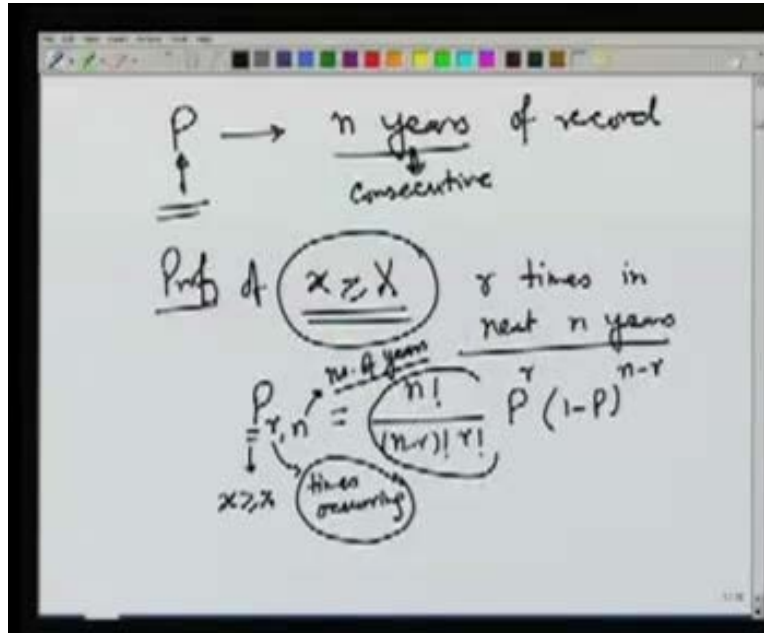 P → n years of record
consecutive
Prob of x ≥ X r times in
next n years
no. of years
P r,n = n! / (n-r)! r! P^r (1-P)^n-r
x ≥ X times
occurring